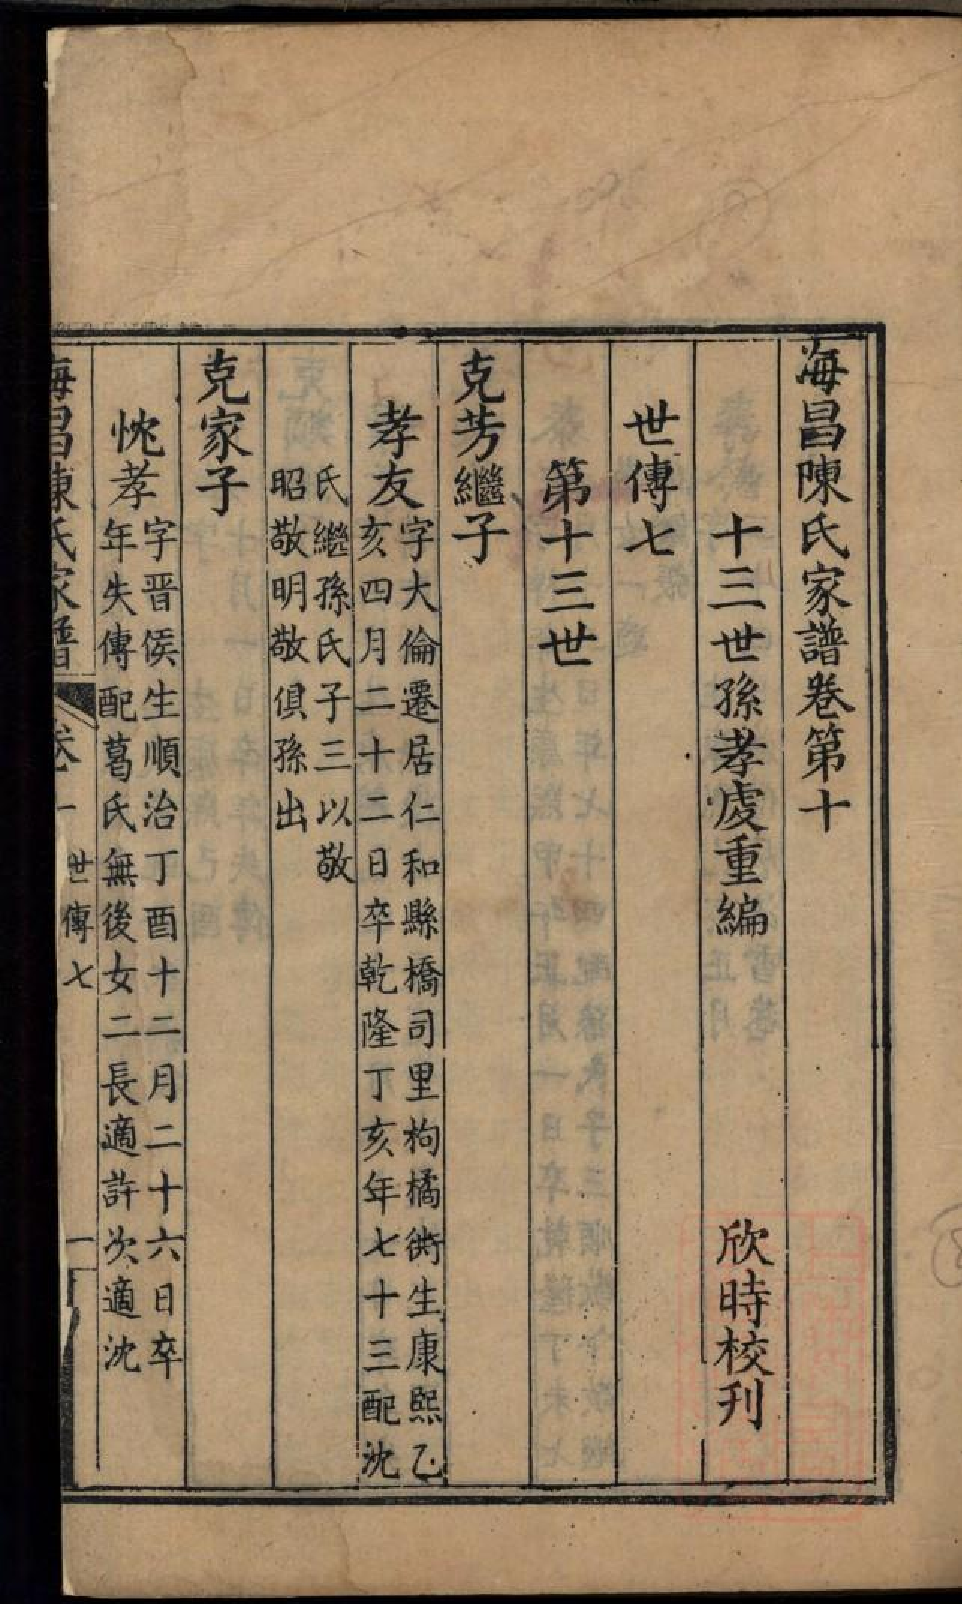 海昌陳氏家譜卷第十
十三世孫孝處重編 欣時校刊
世傳七
第十三世
克芳繼子
孝友
字大倫遷居仁和縣橋司里枸橘衖生康熙乙
亥四月二十二日卒乾隆丁亥年七十三配沈
氏繼孫氏子三以敬
昭敬明敬俱孫出
克家子
忱孝
字晋侯生順治丁酉十二月二十六日卒
年失傳配葛氏無後女二長適許次適沈
海昌陳氏家譜 卷十 世傳七 一